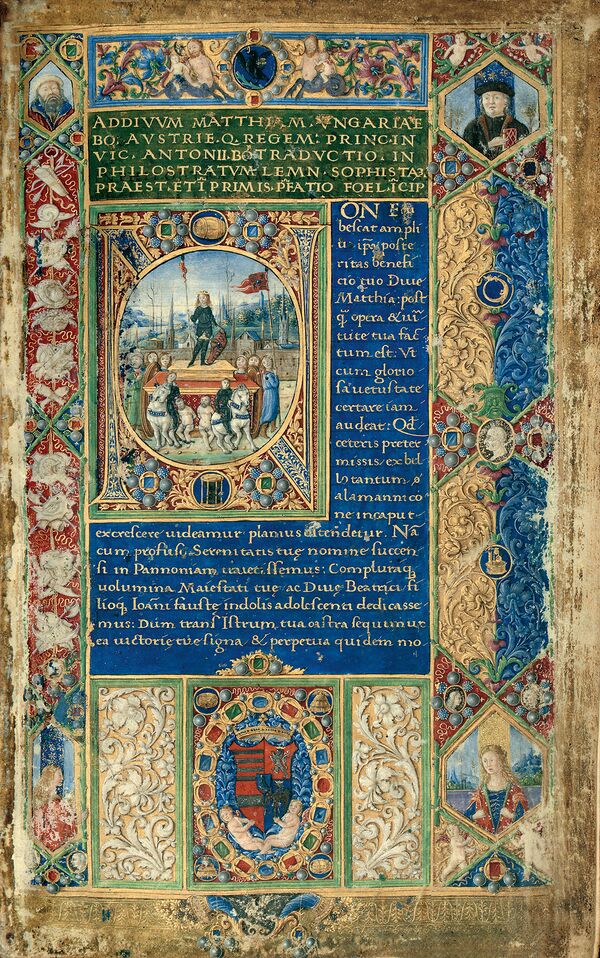 AD DIVVM MATTHIAM. VNGARIAE
BQ. AVSTRIE. Q. REGEM: PRINC. IN
VIC. ANTONII. BŌ. TRADVCTIO. IN
PHILOSTRATVM LEMN. SOPHISTĀ
PRAEST. ETĪ PRIMIS. PFATIO FOEL. ICIP
NON E
bescat ampli
us ipa poste
ritas benefi
cio tuo Dive
Matthia: post
q̄ opera & uir
tute tua fac
tum est: Vt
cum glorio
sa uetustate
certare iam
audeat: Qd
ceteris preter
missis ex bel
lo tantum
alamannico
ne in caput
excrescere uideamur planius ostendetur. Nā
cum profusi, Serenitatis tue nomine succen
si in Pannoniam, Complura
uolumina Maiestati tue ac Diue Beatrici fi
lioq. Ioāni fauste indolis adolescenti dedicasse
mus: Dum trans Istrum tua castra sequimur
ea uictorie tue signa & perpetua quidem mo